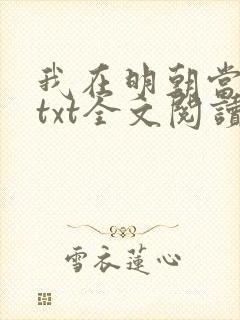 我在明朝當
txt全文閱讀
雪衣蓮心